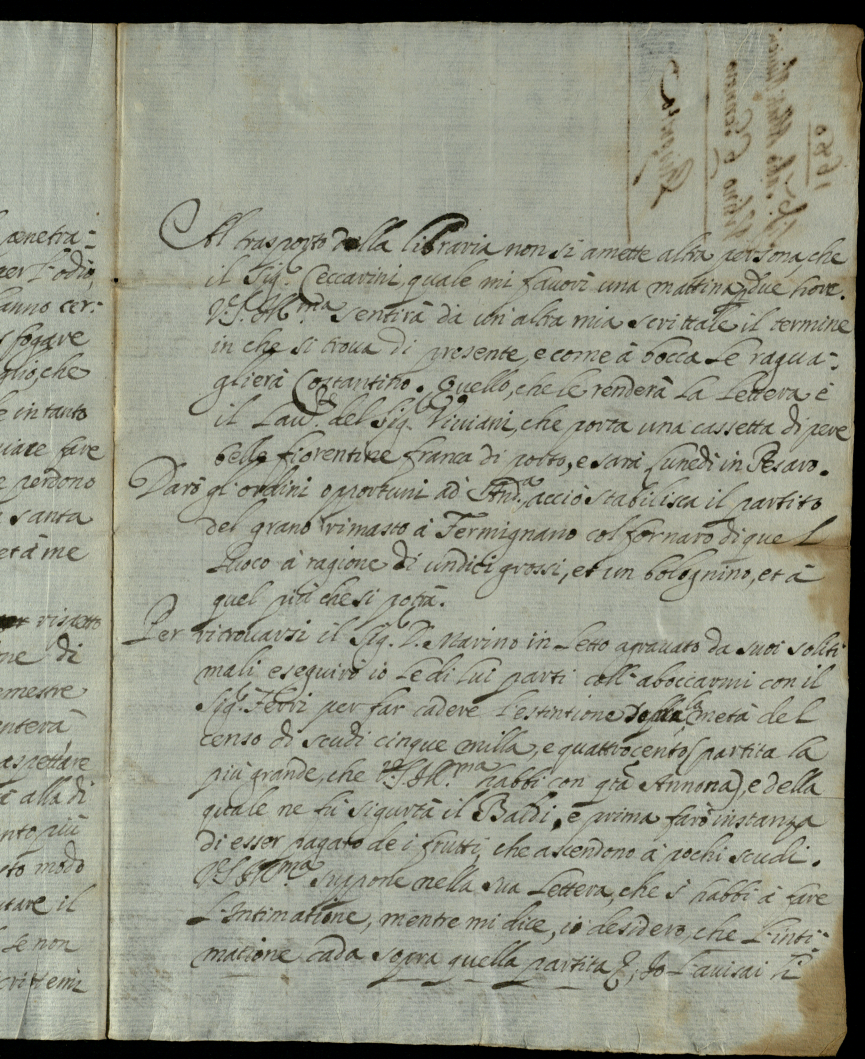 Al trasporto della libraria non si amette altra persona, che
il Sig.r Ceccarini, quale mi favorì una mattina due hore.
V.S. Ill.ma sentirà da un'altra mia scrittale il termine
in che si troua di presente, e come à bocca le ragua-
glierà Costantino. Quello, che le renderà la Lettera è
il del Sig.r Viviani, che porta una cassetta di pere
belle fiorentine franca di porto, e sarà lunedì in Pesaro.
Darò gl'ordini opportuni ad And.a, acciò stabilisca il partito
del grano rimasto à Fermignano col fornaro di quel
luoco à ragione di undici grossi, et un bolognino, et à
quel più che si potrà.
Per ritrouarsi il Sig. D. Marino in Letto agrauato da suoi soliti
mali eseguirò io le di lui parti coll'aboccarmi con il
Sig.r Ferri per far cadere l'estintione della metà del
censo di scudi cinque milla, e quattrocento (partita la
più grande, che V.S. Ill.ma habbi con Annona), e della
quale ne fù sigurtà il Baldi, e prima farò instanza
di esser pagato de i frutti, che ascendono à pochi scudi.
V.S. Ill.ma suppone nella sua Lettera, che si habbi à fare
L'Intimatione, mentre mi dice, io desidero, che L'inti-
matione cada sopra quella partita &, Io L'auisai
penetra-
per l'odio,
hanno cer-
sfogare
che
e intanto
fare
e perdono
santa
et à me
rispetto
di
semestre
aspettare
alla di
più
sto modo
il
se non
1680